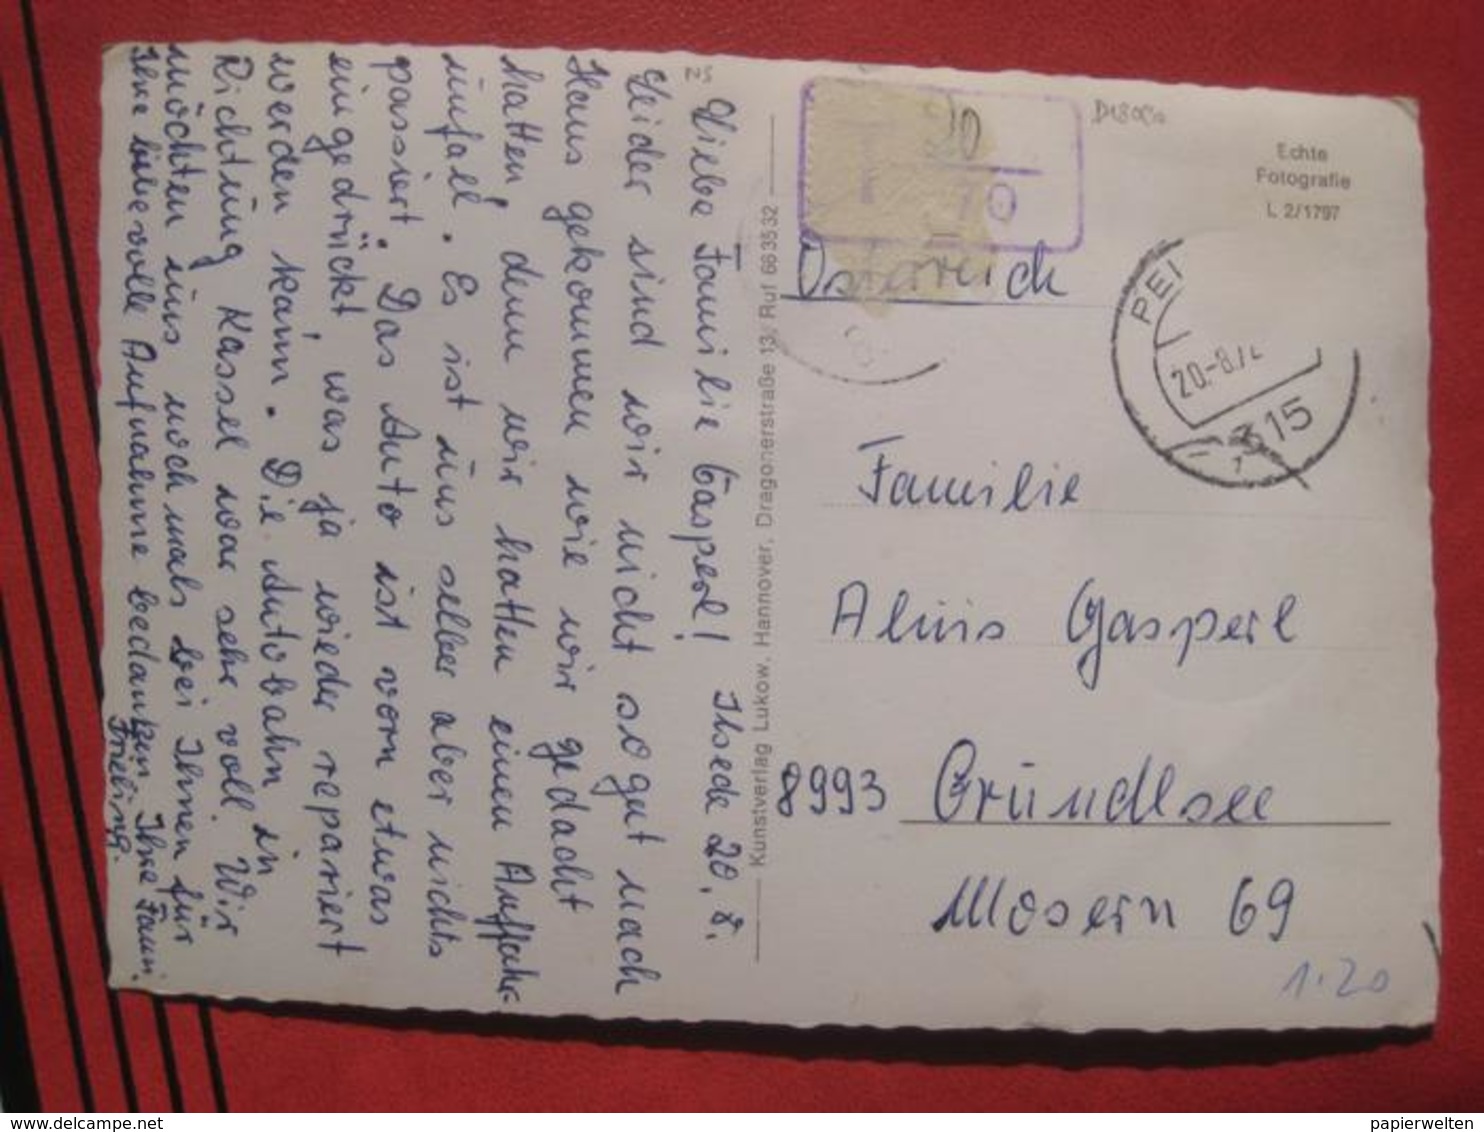 Ilsede 20.8.
Liebe Familie Gasperl!
Leider sind wir nicht so gut nach
Haus gekommen wie wir gedacht
hatten, denn wir hatten einen Auffahr-
unfall. Es ist uns selber aber nichts
passiert. Das Auto ist vorn etwas
eingedrückt, was ja wieder repariert
werden kann. Die Autobahn in
Richtung Kassel war sehr voll. Wir
möchten uns nochmals bei Ihnen für
Ihre liebevolle Aufnahme bedanken. Ihre Fam.
Friebing.
NS
Kunstverlag Lukow, Hannover, Dragonerstraße 13, Ruf 663532
20
70
D180Co
Echte
Fotografie
L 2/1797
PEI
20.-8.7
315
Österreich
Familie
Alois Gasperl
8993 Grundlsee
Mosern 69
1.20
delcampe.net
papierwelten